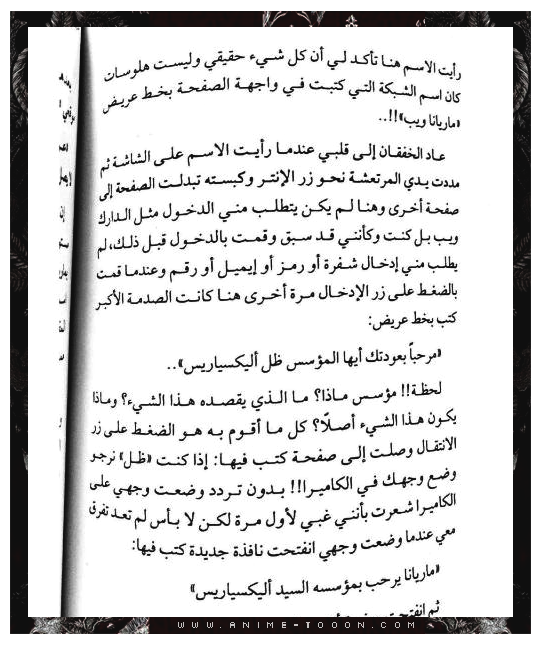 رأيت الاسم هنا تأكد لي أن كل شيء حقيقي وليست هلوسات
كان اسم الشبكة التي كتبت في واجهة الصفحة بخط عريض
«ماريانا ويب»!!..
عاد الخفقان إلى قلبي عندما رأيت الاسم على الشاشة ثم
مددت يدي المرتعشة نحو زر الإنتر وكبسته تبدلت الصفحة إلى
صفحة أخرى وهنا لم يكن يتطلب مني الدخول مثل الدارك
ويب بل كنت وكأنني قد سبق وقمت بالدخول قبل ذلك، لم
يطلب مني إدخال شفرة أو رمز أو إيميل أو رقم وعندما قمت
بالضغط على زر الإدخال مرة أخرى هنا كانت الصدمة الأكبر
كتب بخط عريض:
«مرحباً بعودتك أيها المؤسس ظل أليكسياريس»..
لحظة!! مؤسس ماذا؟ ما الذي يقصده هذا الشيء؟ وماذا
يكون هذا الشيء أصلًا؟ كل ما أقوم به هو الضغط على زر
الانتقال وصلت إلى صفحة كتب فيها: إذا كنت «ظل» نرجو
وضع وجهك في الكاميرا!! بدون تردد وضعت وجهي على
الكاميرا شعرت بأنني غبي لأول مرة لكن لا بأس لم تعد تفرق
معي عندما وضعت وجهي انفتحت نافذة جديدة كتب فيها:
«ماريانا يرحب بمؤسسه السيد أليكسياريس»
ثم انفتحت
WWW.ANIME-TOOON.COM